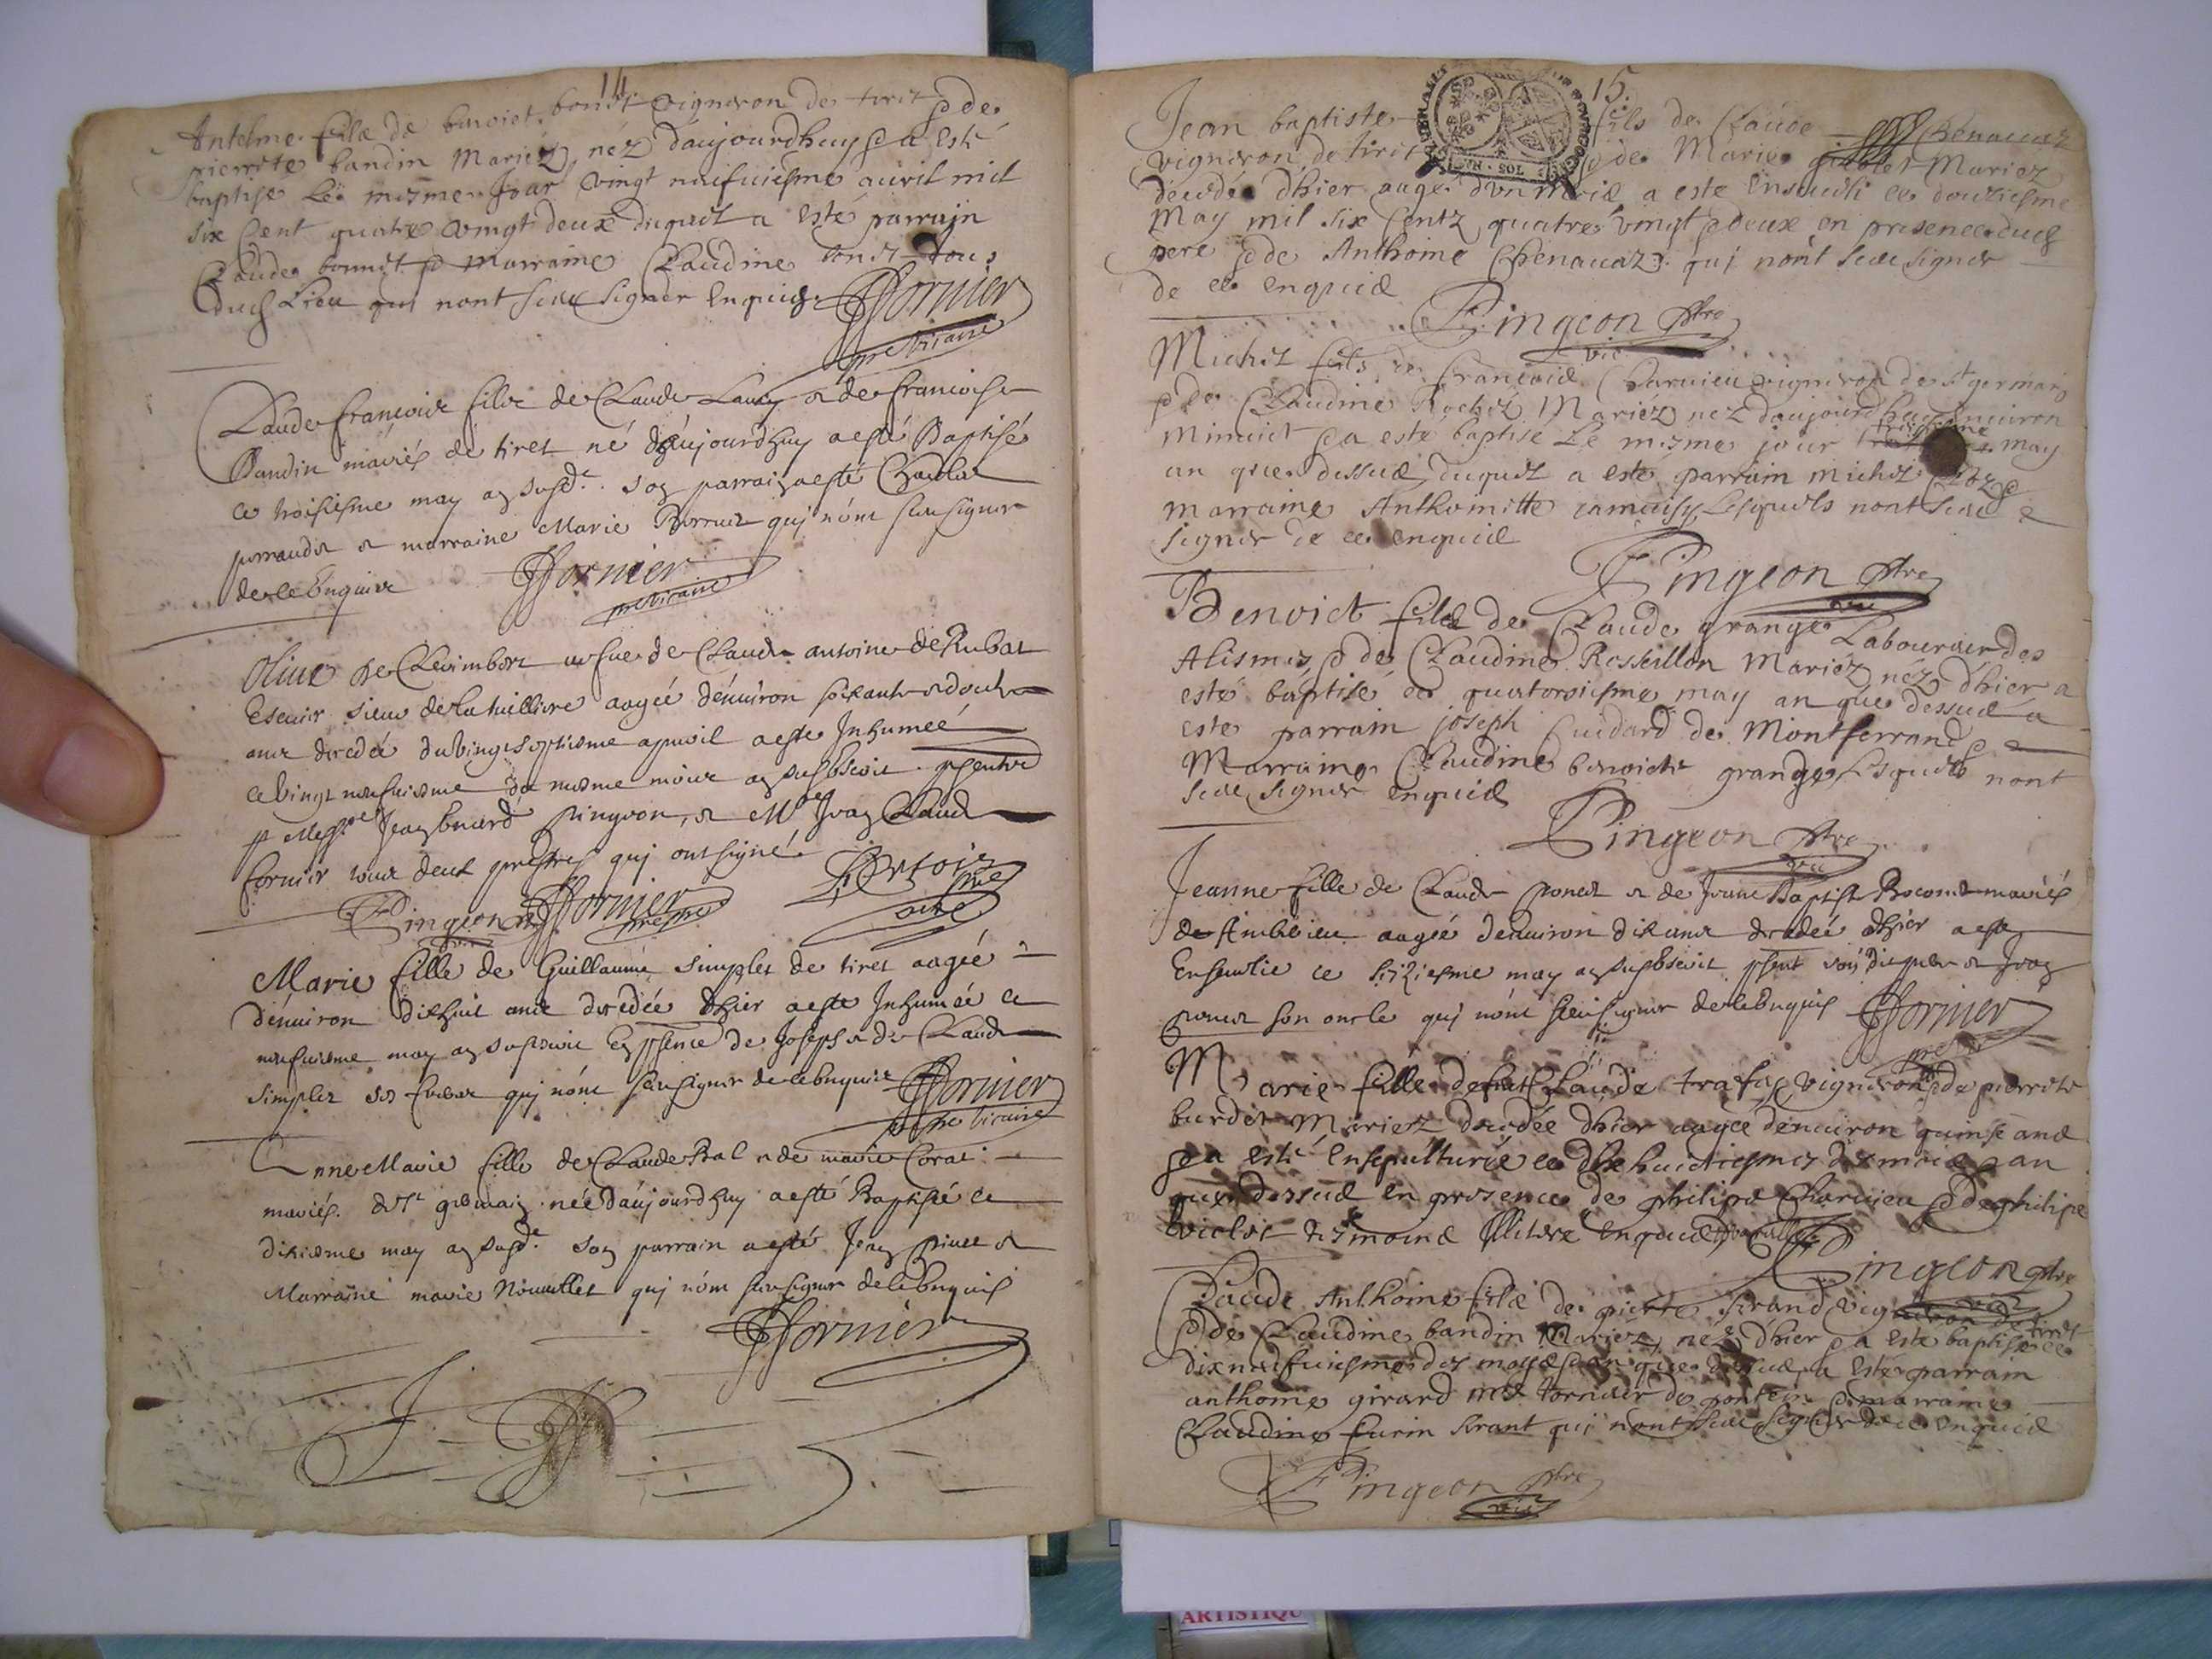 14
Antelme fils de benoict bonet vigneron de tiret & de
pierrete bandin Mariéz, néz daujourdhuy & a esté
baptise Le mesme Jour vingt neufuiesme auril mil
six Cent quatre vingt deux duquel a esté parrain
Claude bonnet & Marraine Claudine bonet tous
dud Lieu qui nont sceu signer Enquis
Fornier
pre vicaire
Claude françois filz de Claude Lauy & de francoise
Bandin mariés de tiret né daujourdhuy a esté Baptisé
ce troisiesme may an susd.e son parrain a esté Charles
perraudet & marraine Marie qui n'ont sceu signer
de ce Enquis
Fornier
pre vicaire
Oliue de vefue de Claude antoine de Rubat
Escuier sieur de la aagée d'enuiron soixante & douze
ans decedée du vingt septiesme apuril a esté Inhumée
ce vingt neufuiesme du mesme mois an susescrit presents
Jean pingeon, & Mre Jean Claude
fornier tous deux prestres qui ont signé
Pingeon Fornier
prestre
curé
Marie fille de Guillaume simplet de tiret aagée
d'enuiron dixhuit ans decedée d'hier a esté Inhumée ce
neufuiesme may an susescrit En psence de Joseph & de Claude
simplet ses freres qui n'ont sceu signer de ce Enquis
Fornier
pre vicaire
Anne Marie fille de Claude Bal & de marie Corat
mariés de St germain née daujourdhuy a esté Baptisée ce
dixiesme may an susd.e son parrain a esté Jean &
Marraine marie Nouuellet qui n'ont sceu signer de ce Enquis
Fornier
15
Jean baptiste fils de Claude Chenauaz
vigneron de tiret & de Marie giroler Mariez
decedé d'hier aagé d'vn Mois a este Enseueli ce douziesme
May mil six Centz quatre vingt & deux en presence dud
pere & de Anthoine Chenauaz qui n'ont sceu signer
de ce enquis
Pingeon ptre
vic
Michel fils de François Charuieu vigneron de St germain
& de Claudine Rochet Mariéz nez daujourdhuy enuiron
Minuict & a esté baptisé Le mesme jour may
an que dessus duquel a este parrain michel
marraine Anthomitte Lesquels nont sceu
signer de ce enquis
Pingeon ptre
vic
Benoict fils de Claude grange Laboureur des
Alismes & de Claudine Rosseillon Mariez néz d'hier a
esté baptisé ce quatorsiesme may an que dessus a
este parrain joseph Cuidard de Montferrand &
Marraine Claudine benoicte grange Lesquels nont
sceu signer enquis
Pingeon ptre
vic
Jeanne fille de Claude ponet & de Jeane Baptiste mariés
de Ambérieu aagée d'enuiron dix ans decedée d'hier a esté
Enseuelie ce seiziesme may an susescrit psent son dit pere & Jean
ponet son oncle qui n'ont sceu signer de ce Enquis
Fornier
prestre
Marie fille de feu Claude trafay vigneron & de pierrete
burdet Mariez decedée d'hier aagée d'enuiron quinse ans
& a esté Ensepulturée ce dixhuictiesme de mois & an
que dessus en presence de philipe Charuieu & de philipe
violet tesmoins Illiteré enquis
Pingeon ptre
vic
Claude Anthoine fils de pierre vigneron de tiret
& de Claudine bandin Mariez, nez d'hier & a este baptisé ce
dixneufuiesme des mois & an que dessus a esté parrain
anthoine girard de & marraine
Claudine qui nont sceu signer de ce enquis
Pingeon ptre
vic
ARTISTIQU